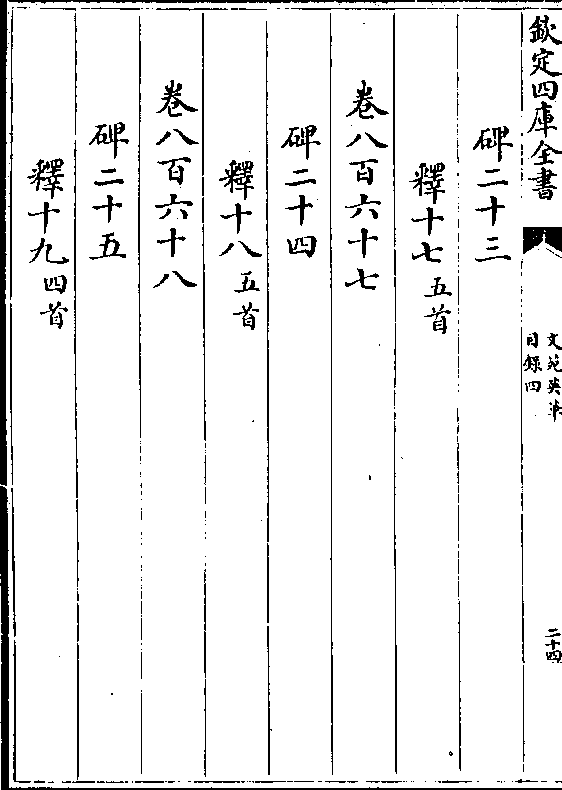 欽定四庫全書
文苑英華
目錄四
二十四
碑二十三
釋十七五首
卷八百六十七
碑二十四
釋十八五首
卷八百六十八
碑二十五
釋十九四首